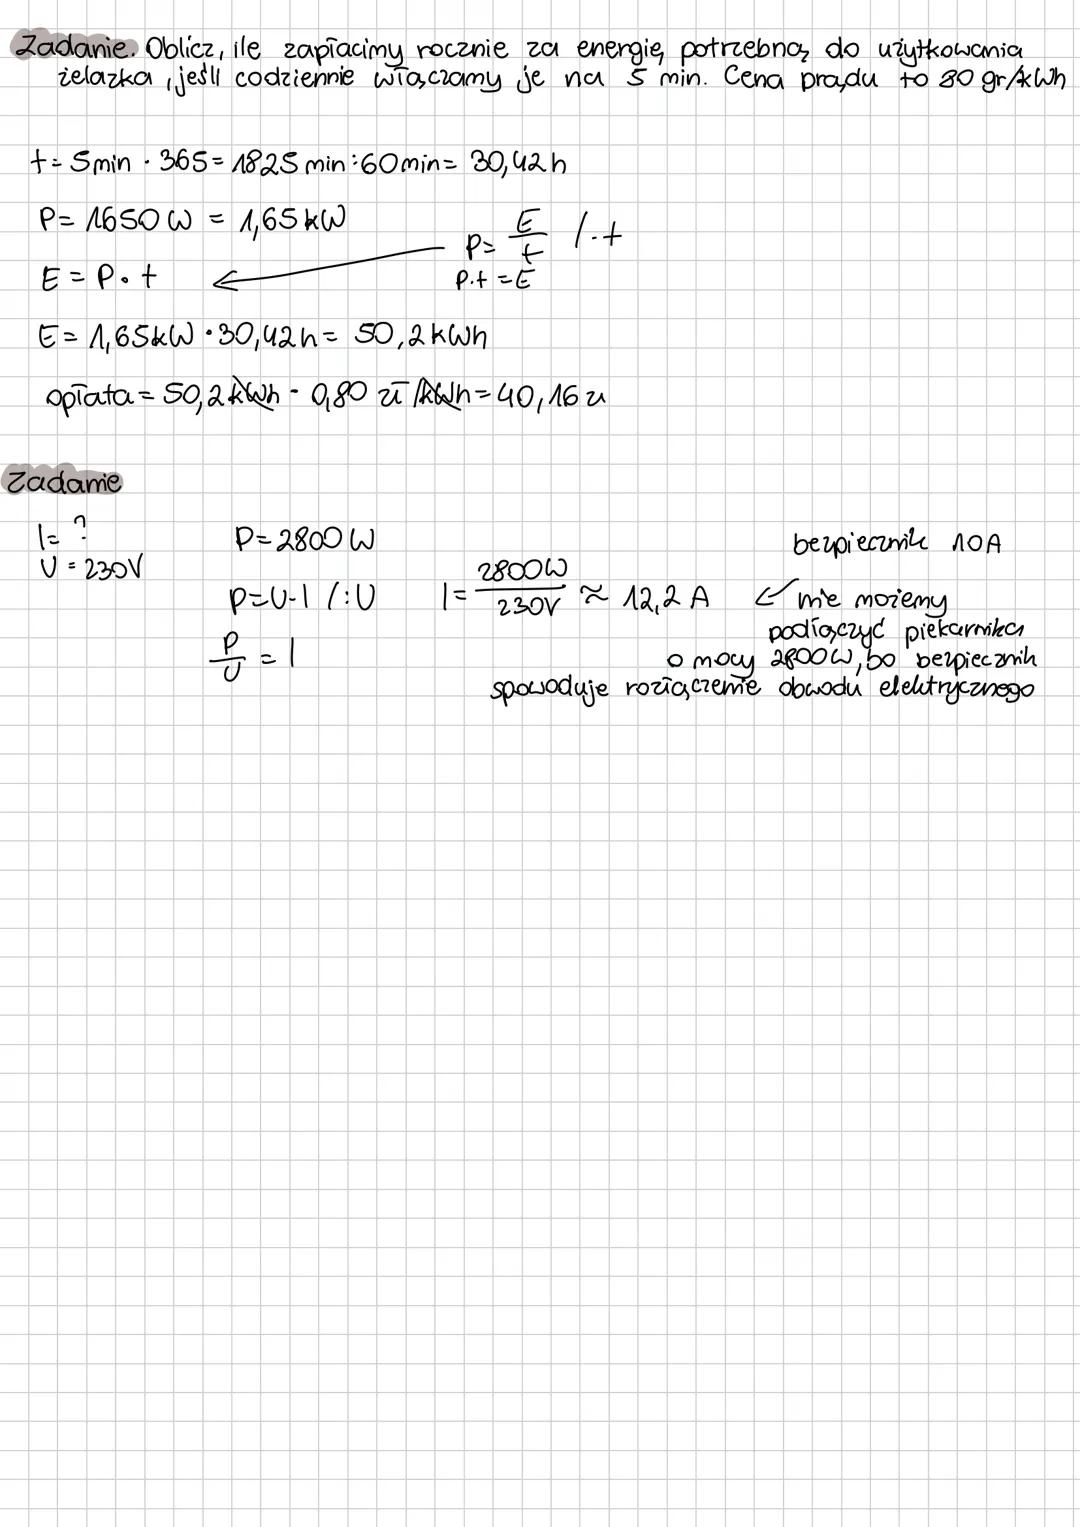 Zadanie. Oblicz, ile zapłacimy rocznie za energię potrzebną do użytkowania
żelazka, jeśli codziennie włączamy je na 5 min. Cena prądu to 80 gr/kWh
t = 5min · 365 = 1825 min : 60min = 30,42 h
P = 1650 W = 1,65 kW
P = E/t /·t
E = P · t
P·t = E
E = 1,65kW · 30,42h = 50,2 kWh
opłata = 50,2 kWh · 0,80 zł/kWh = 40,16 zł
Zadanie
I = ?
P = 2800 W
bezpiecznik 10A
U = 230V
P = U·I /:U
I = 2800W/230V ≈ 12,2 A
nie możemy
P/U = I
podłączyć piekarnika
o mocy 2800W, bo bezpiecznik
spowoduje rozłączenie obwodu elektrycznego